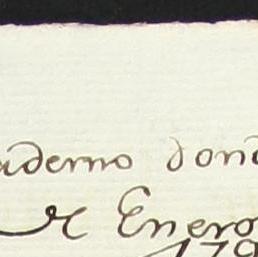 uaderno dond
de Enero
179